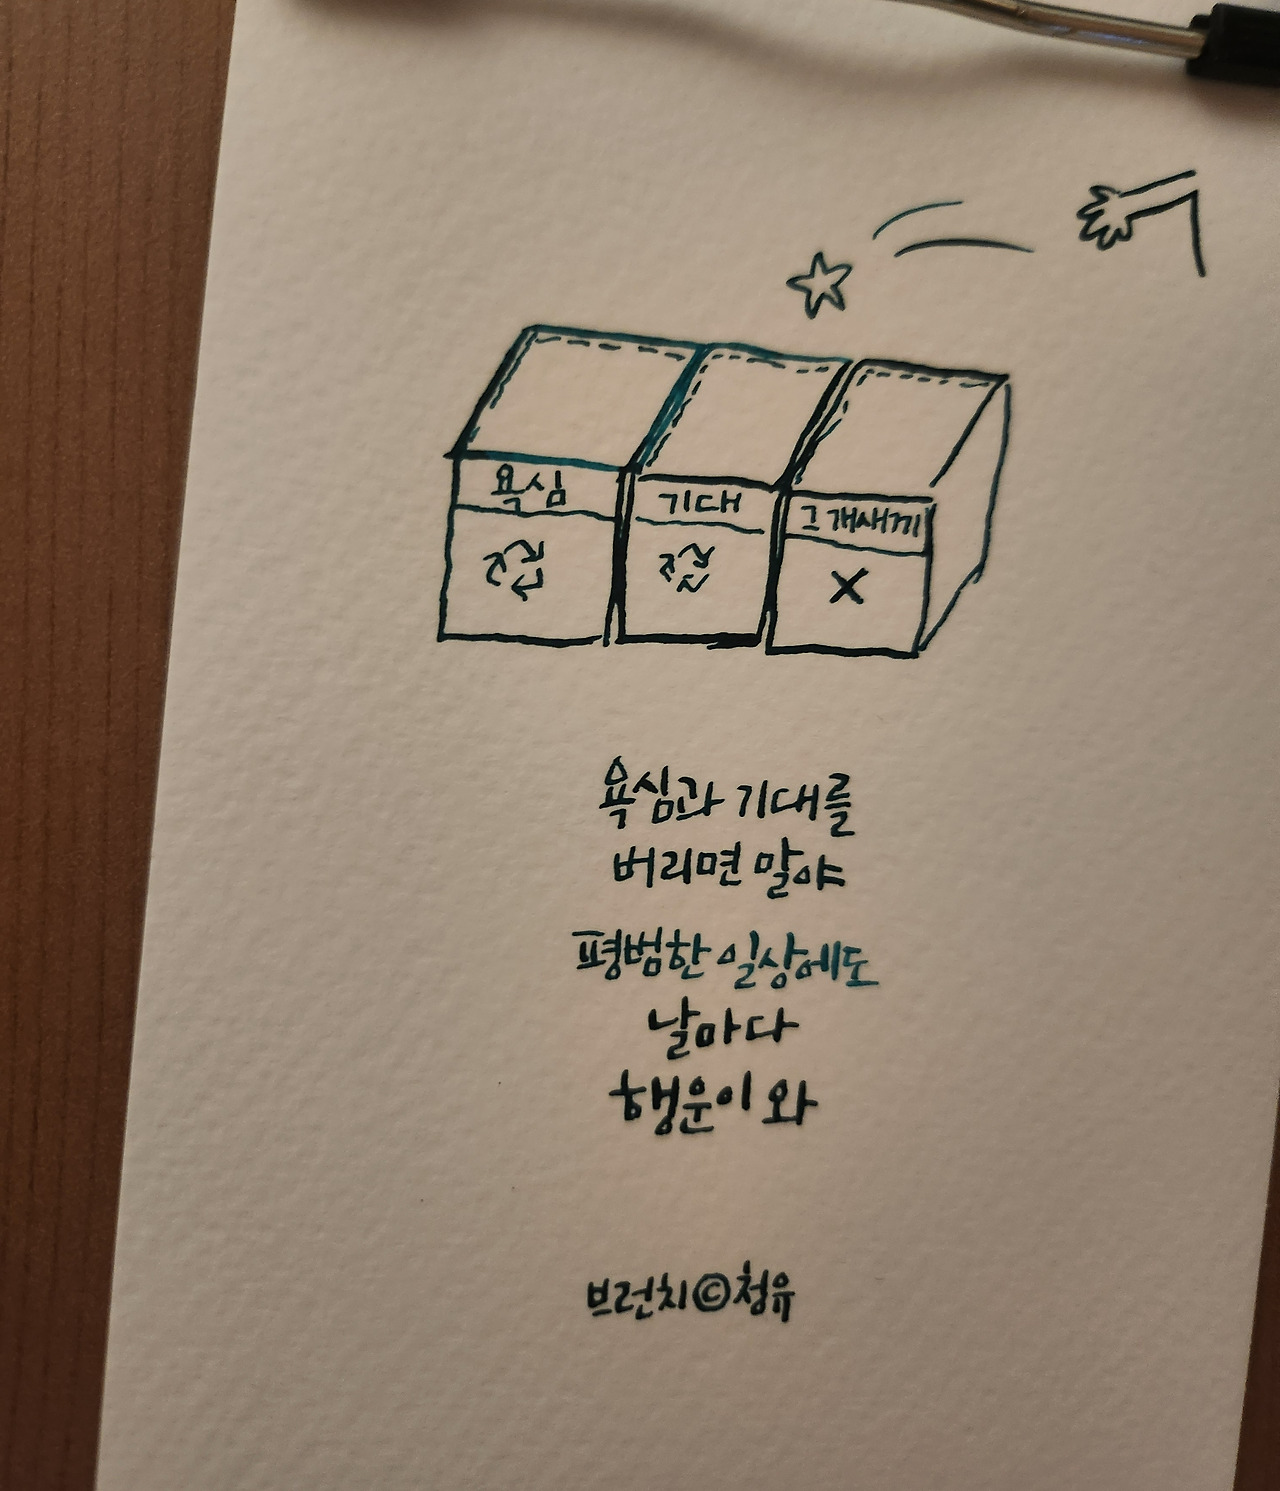 욕심
기대
그 개새끼
X
욕심과 기대를
버리면 말야
평범한 일상에도
날마다
행운이 와
브런치©청유